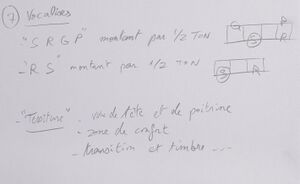 ⑦ Vocalises
- "S R G P" montant par 1/2 TON
G P
S R
- "R S" montant par 1/2 TON
S R
- "Tessiture" - voix de tête et de poitrine
- zone de confort
- transition et timbre ...